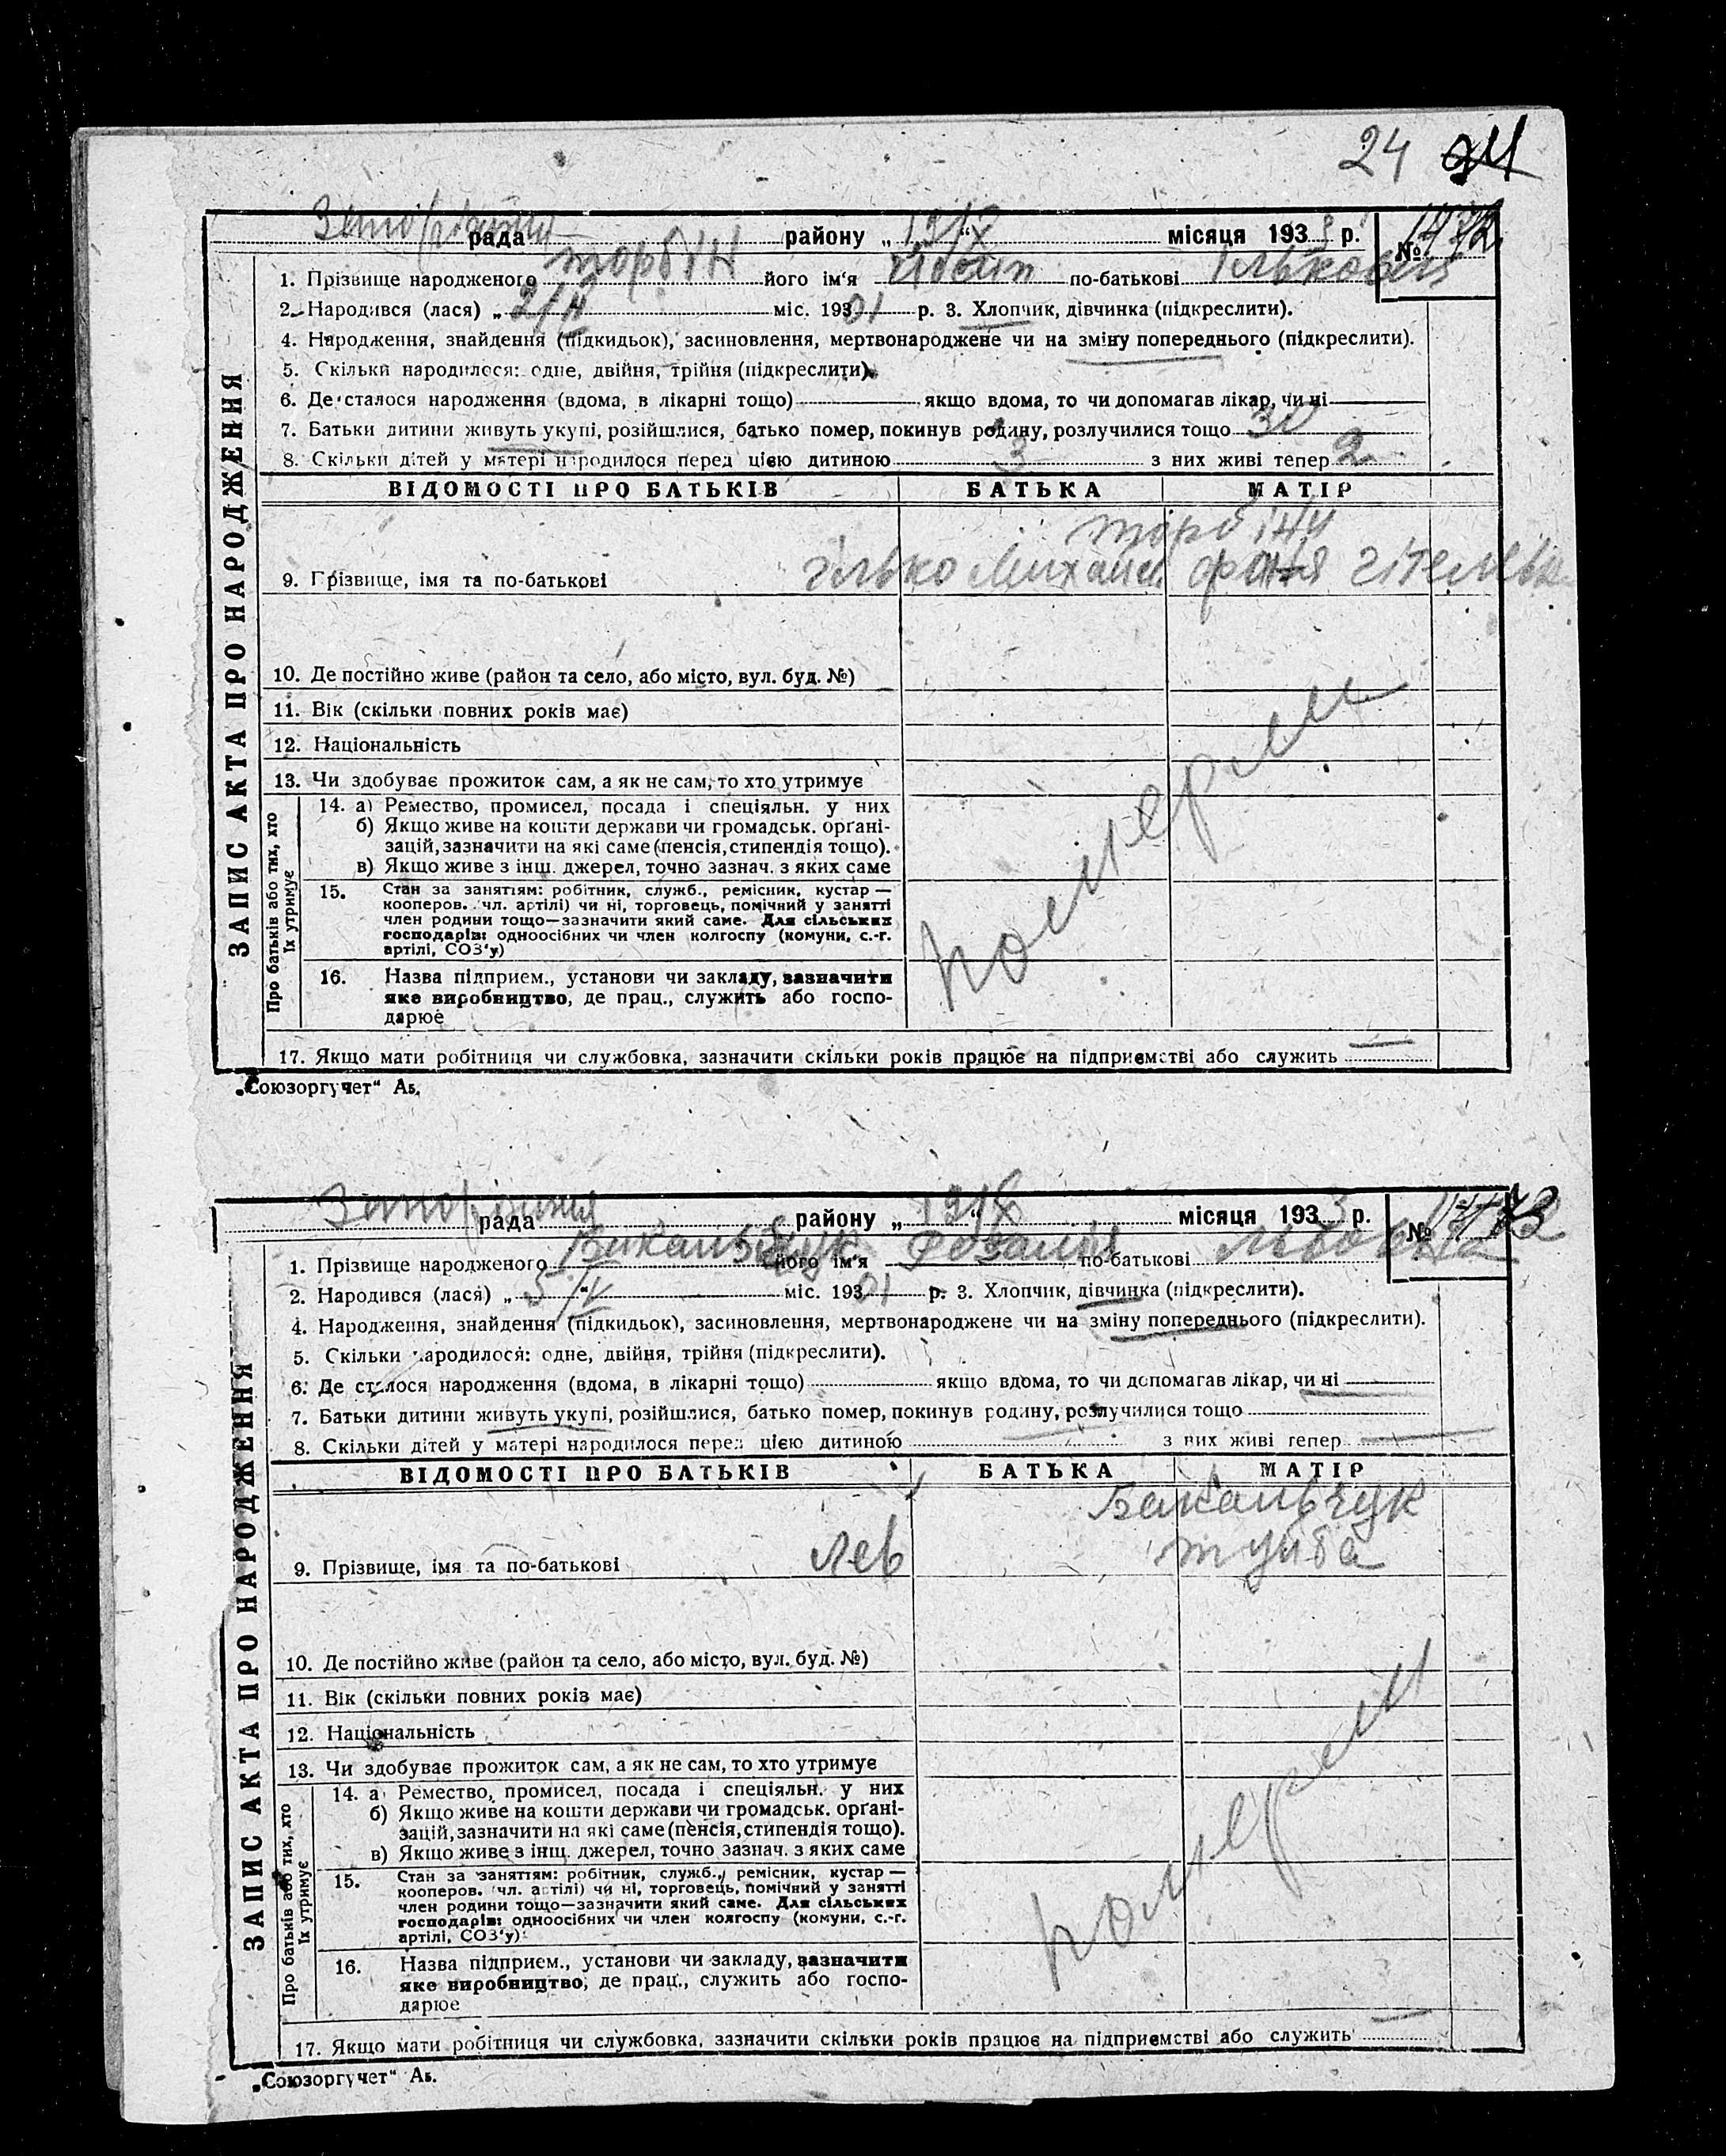 24
рада району „19/X“ місяця 1933 р. №
1. Прізвище народженого Торбін його ім‘я Йосип по-батькові Ількович
2. Народився (лася) „2/II міс. 19301 р. 3. Хлопчик, дівчинка (підкреслити).
4. Народження, знайдення (підкидьок), засиновлення, мертвонароджене чи на зміну попереднього (підкреслити).
5. Скільки народилося: одне, двійня, трійня (підкреслити).
6. Де сталося народження (вдома, в лікарні тощо) якщо вдома, то чи допомагав лікар, чи ні
7. Батьки дитини живуть укупі, розійшлися, батько помер, покинув родину, розлучилися тощо
8. Скільки дітей у матері народилося перед цією дитиною 3 з них живі тепер 2
ВІДОМОСТІ ПРО БАТЬКІВ БАТЬКА МАТІР
Торбіни
9. Прізвище, імя та по-батькові Ілько Михайл Фаня
10. Де постійно живе (район та село, або місто, вул. буд. №)
11. Вік (скільки повних років має)
12. Національність
13. Чи здобуває прожиток сам, а як не сам, то хто утримує
14. а) Ремество, промисел, посада і спеціяльн. у них
б) Якщо живе на кошти держави чи громадськ. орґані-
зацій, зазначити на які саме (пенсія, стипендія тощо).
в) Якщо живе з інш. джерел, точно зазнач. з яких саме
15. Стан за заняттям: робітник, служб., ремісник, кустар —
кооперов. чл. артілі) чи ні, торговець, помічний у занятті
член родини тощо—зазначити який саме. Для сільських
господарів: одноосібних чи член колгоспу (комуни, с.-г.
артілі, СОЗ‘у)
16. Назва підприєм., установи чи закладу, зазначити
яке виробництво, де прац., служить або госпо-
дарює
померли
17. Якщо мати робітниця чи службовка, зазначити скільки років працює на підприємстві або служить
Про батьків або тих, хто
їх утримує
ЗАПИС АКТА ПРО НАРОДЖЕННЯ
„Союзоргучет“ Аб.
рада району „19/X“ місяця 1933 р. №
1. Прізвище народженого Бакальчук його ім‘я Розалія по-батькові Львовна
2. Народився (лася) „5/IV“ міс. 19301 р. 3. Хлопчик, дівчинка (підкреслити).
4. Народження, знайдення (підкидьок), засиновлення, мертвонароджене чи на зміну попереднього (підкреслити).
5. Скільки народилося: одне, двійня, трійня (підкреслити).
6. Де сталося народження (вдома, в лікарні тощо) якщо вдома, то чи допомагав лікар, чи ні
7. Батьки дитини живуть укупі, розійшлися, батько помер, покинув родину, розлучилися тощо
8. Скільки дітей у матері народилося перед цією дитиною з них живі тепер
ВІДОМОСТІ ПРО БАТЬКІВ БАТЬКА МАТІР
Бакальчук
9. Прізвище, імя та по-батькові Лев Туйба
10. Де постійно живе (район та село, або місто, вул. буд. №)
11. Вік (скільки повних років має)
12. Національність
13. Чи здобуває прожиток сам, а як не сам, то хто утримує
14. а) Ремество, промисел, посада і спеціяльн. у них
б) Якщо живе на кошти держави чи громадськ. орґані-
зацій, зазначити на які саме (пенсія, стипендія тощо).
в) Якщо живе з інш. джерел, точно зазнач. з яких саме
15. Стан за заняттям: робітник, служб., ремісник, кустар —
кооперов. чл. артілі) чи ні, торговець, помічний у занятті
член родини тощо—зазначити який саме. Для сільських
господарів: одноосібних чи член колгоспу (комуни, с.-г.
артілі, СОЗ‘у)
16. Назва підприєм., установи чи закладу, зазначити
яке виробництво, де прац., служить або госпо-
дарює
померли
17. Якщо мати робітниця чи службовка, зазначити скільки років працює на підприємстві або служить
Про батьків або тих, хто
їх утримує
ЗАПИС АКТА ПРО НАРОДЖЕННЯ
„Союзоргучет“ Аб.